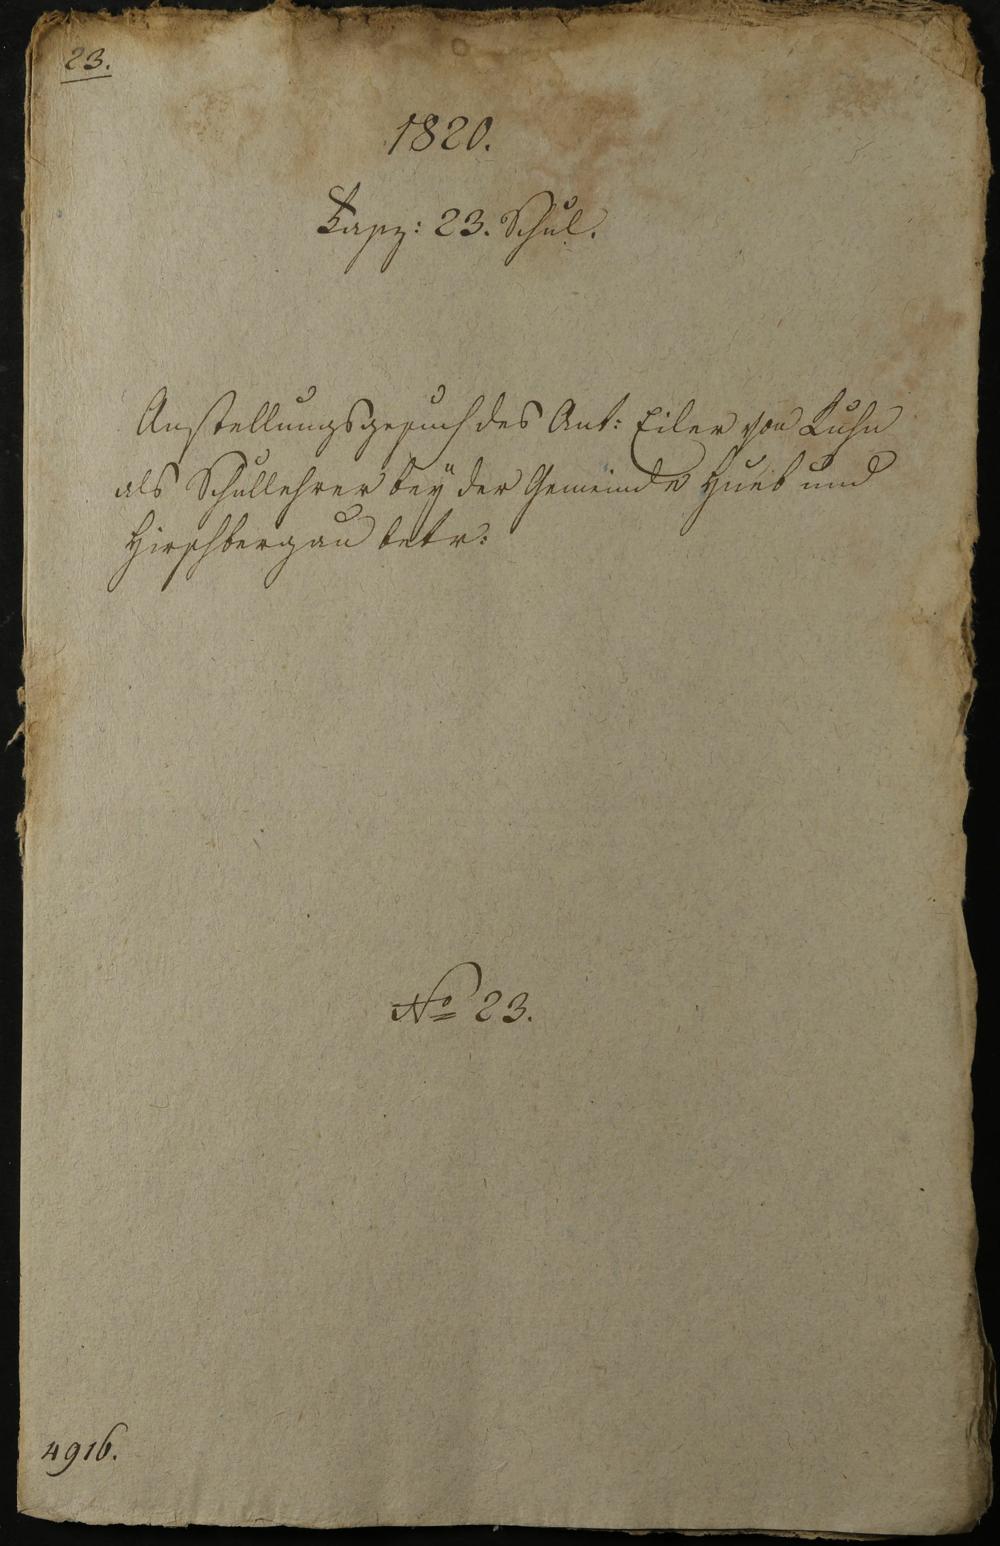 23.
1820.
Fasz: 23. Schul.
Anstellungsgesuch des Ant: Eiler von Kuhn
als Schullehrer bey der Gemeinde Hueb und
Hirschbergau betr:
No 23.
4916.